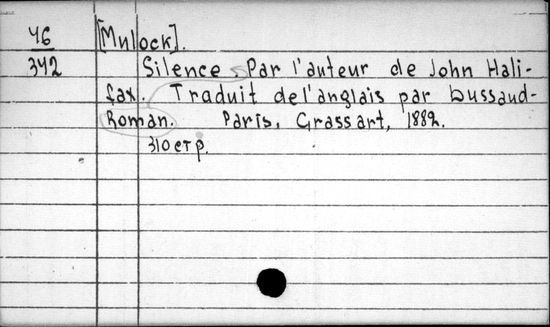 46 [Mulock].
342 Silence. Par l'auteur de John Hali-
fax. Traduit de l'anglais par Dussaud-
Roman. Paris, Grassart, 1882.
310 стр.